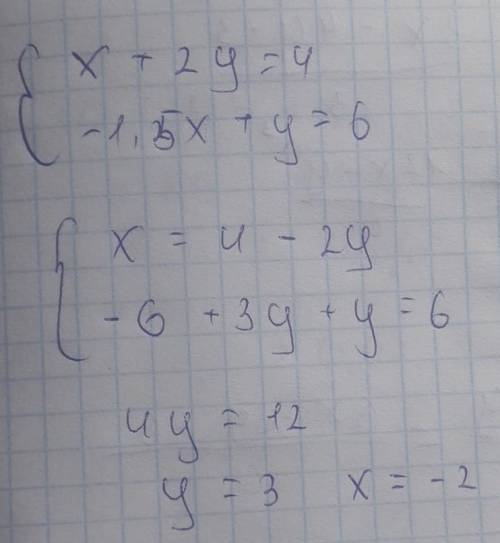 x + 2y = 4
-1,5x + y = 6
x = 4 - 2y
-6 + 3y + y = 6
4y = 12
y = 3 x = -2